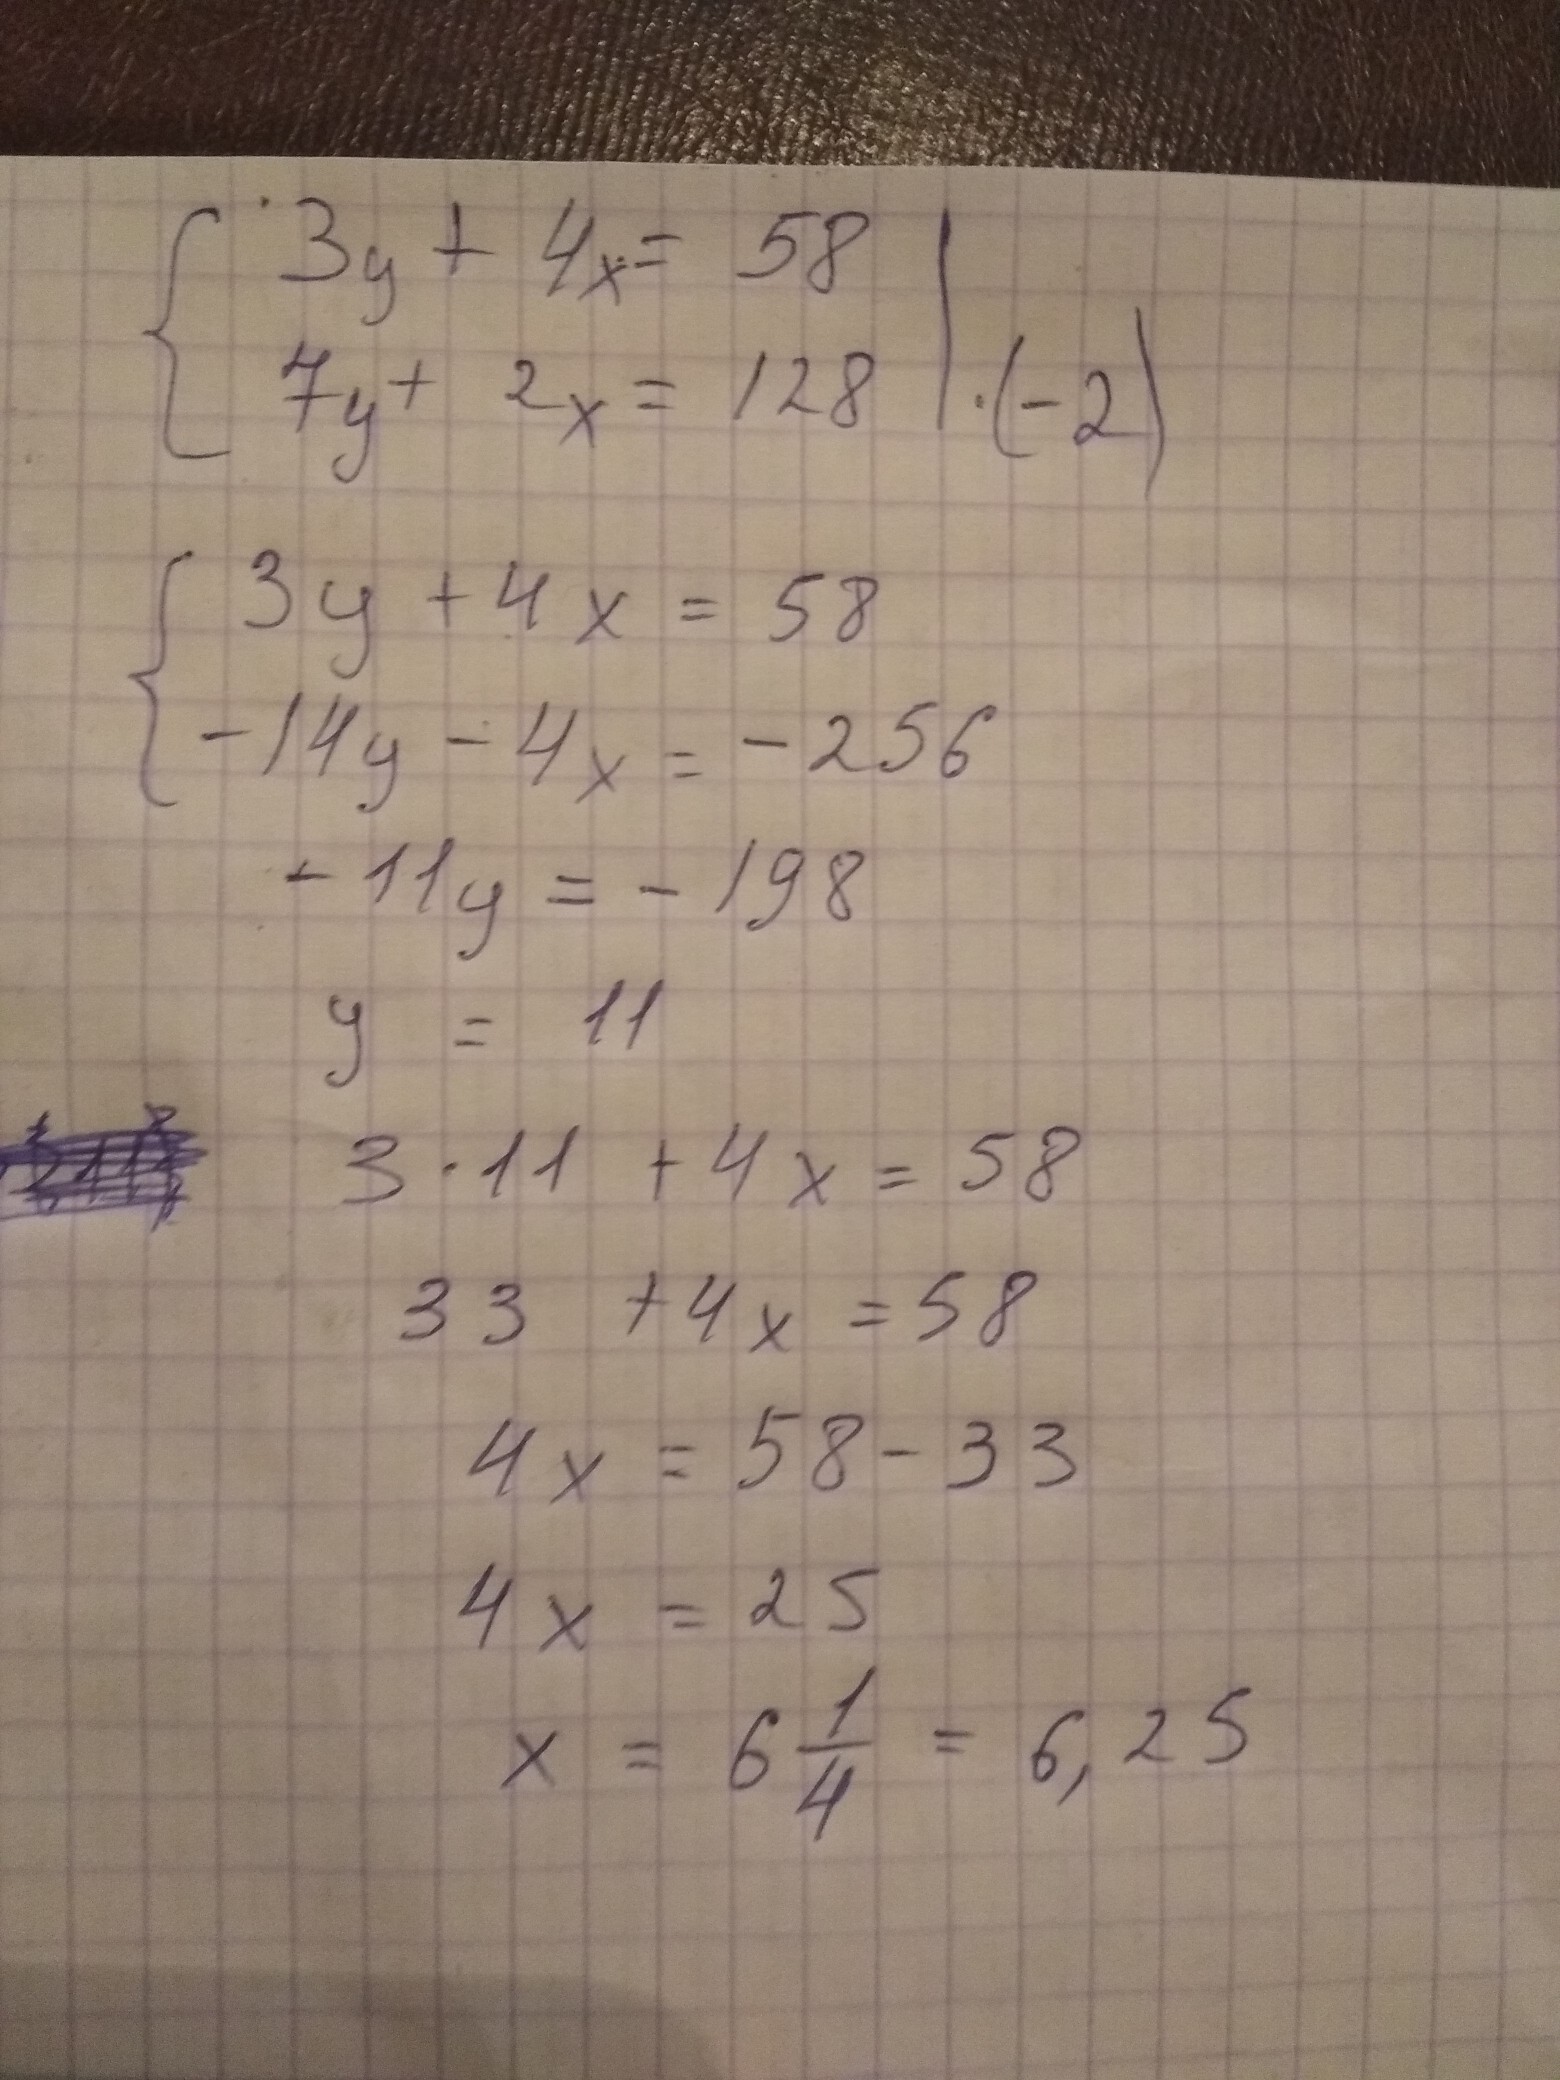 3y + 4x = 58
7y + 2x = 128 | · (-2)
3y + 4x = 58
-14y - 4x = -256
-11y = -198
y = 11
3 · 11 + 4x = 58
33 + 4x = 58
4x = 58 - 33
4x = 25
x = 6 1/4 = 6,25